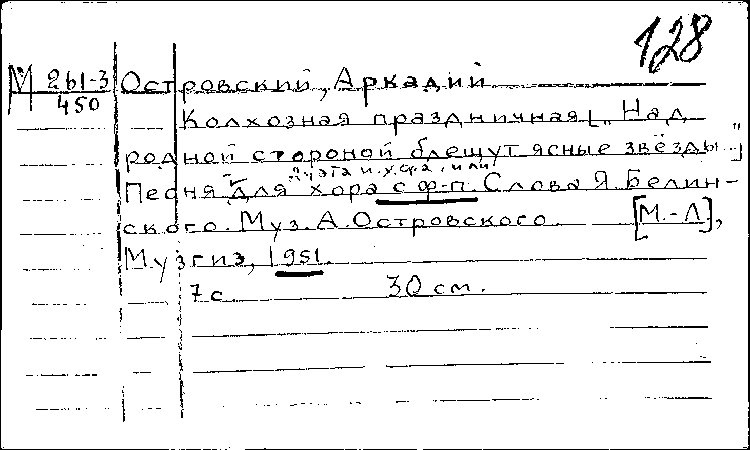 128
М 261-3
450
Островский, Аркадий
Колхозная праздничная [„Над
родной стороной блещут ясные звёзды..."]
дуэта и хора, или
Песня для хора с ф-п. Слова Я. Белин-
ского. Муз. А. Островского [М.-Л],
Музгиз, 1951.
7 с 30 см.